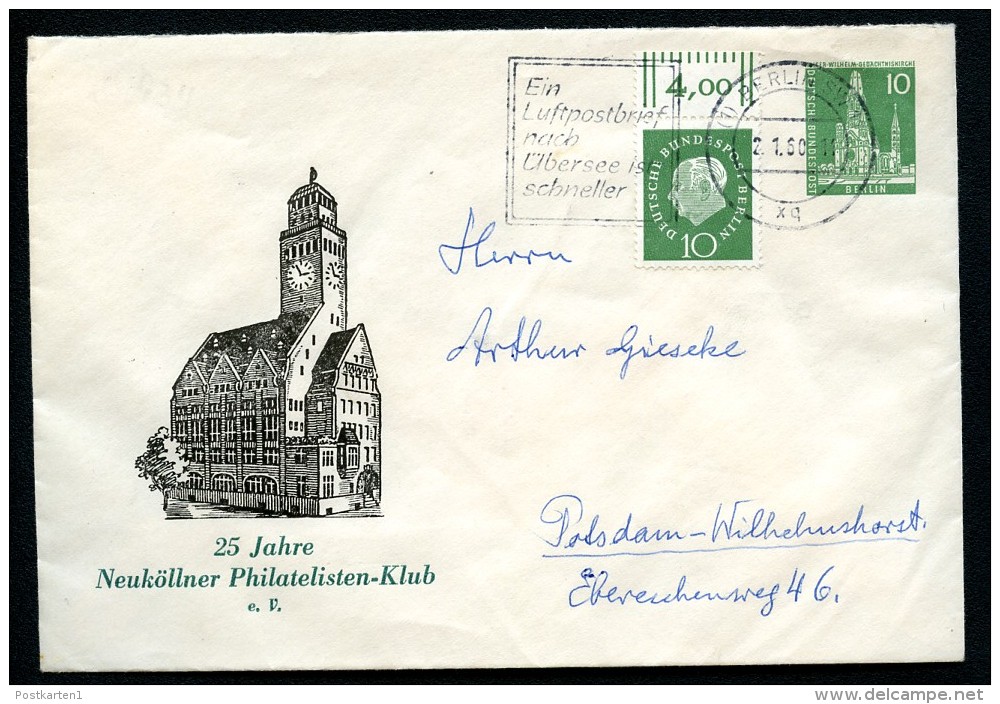 4,00
KAISER-WILHELM-GEDÄCHTNISKIRCHE
10
DEUTSCHE BUNDESPOST
BERLIN
Ein
Luftpostbrief
nach
Übersee ist
schneller
BERLIN SW
2.1.60
xq
DEUTSCHE BUNDESPOST BERLIN
10
Herrn
Arthur Gieseke
Potsdam-Wilhelmshorst.
Ebereschenweg 46.
25 Jahre
Neuköllner Philatelisten-Klub
e. V.
Postkarten1
delcampe.net